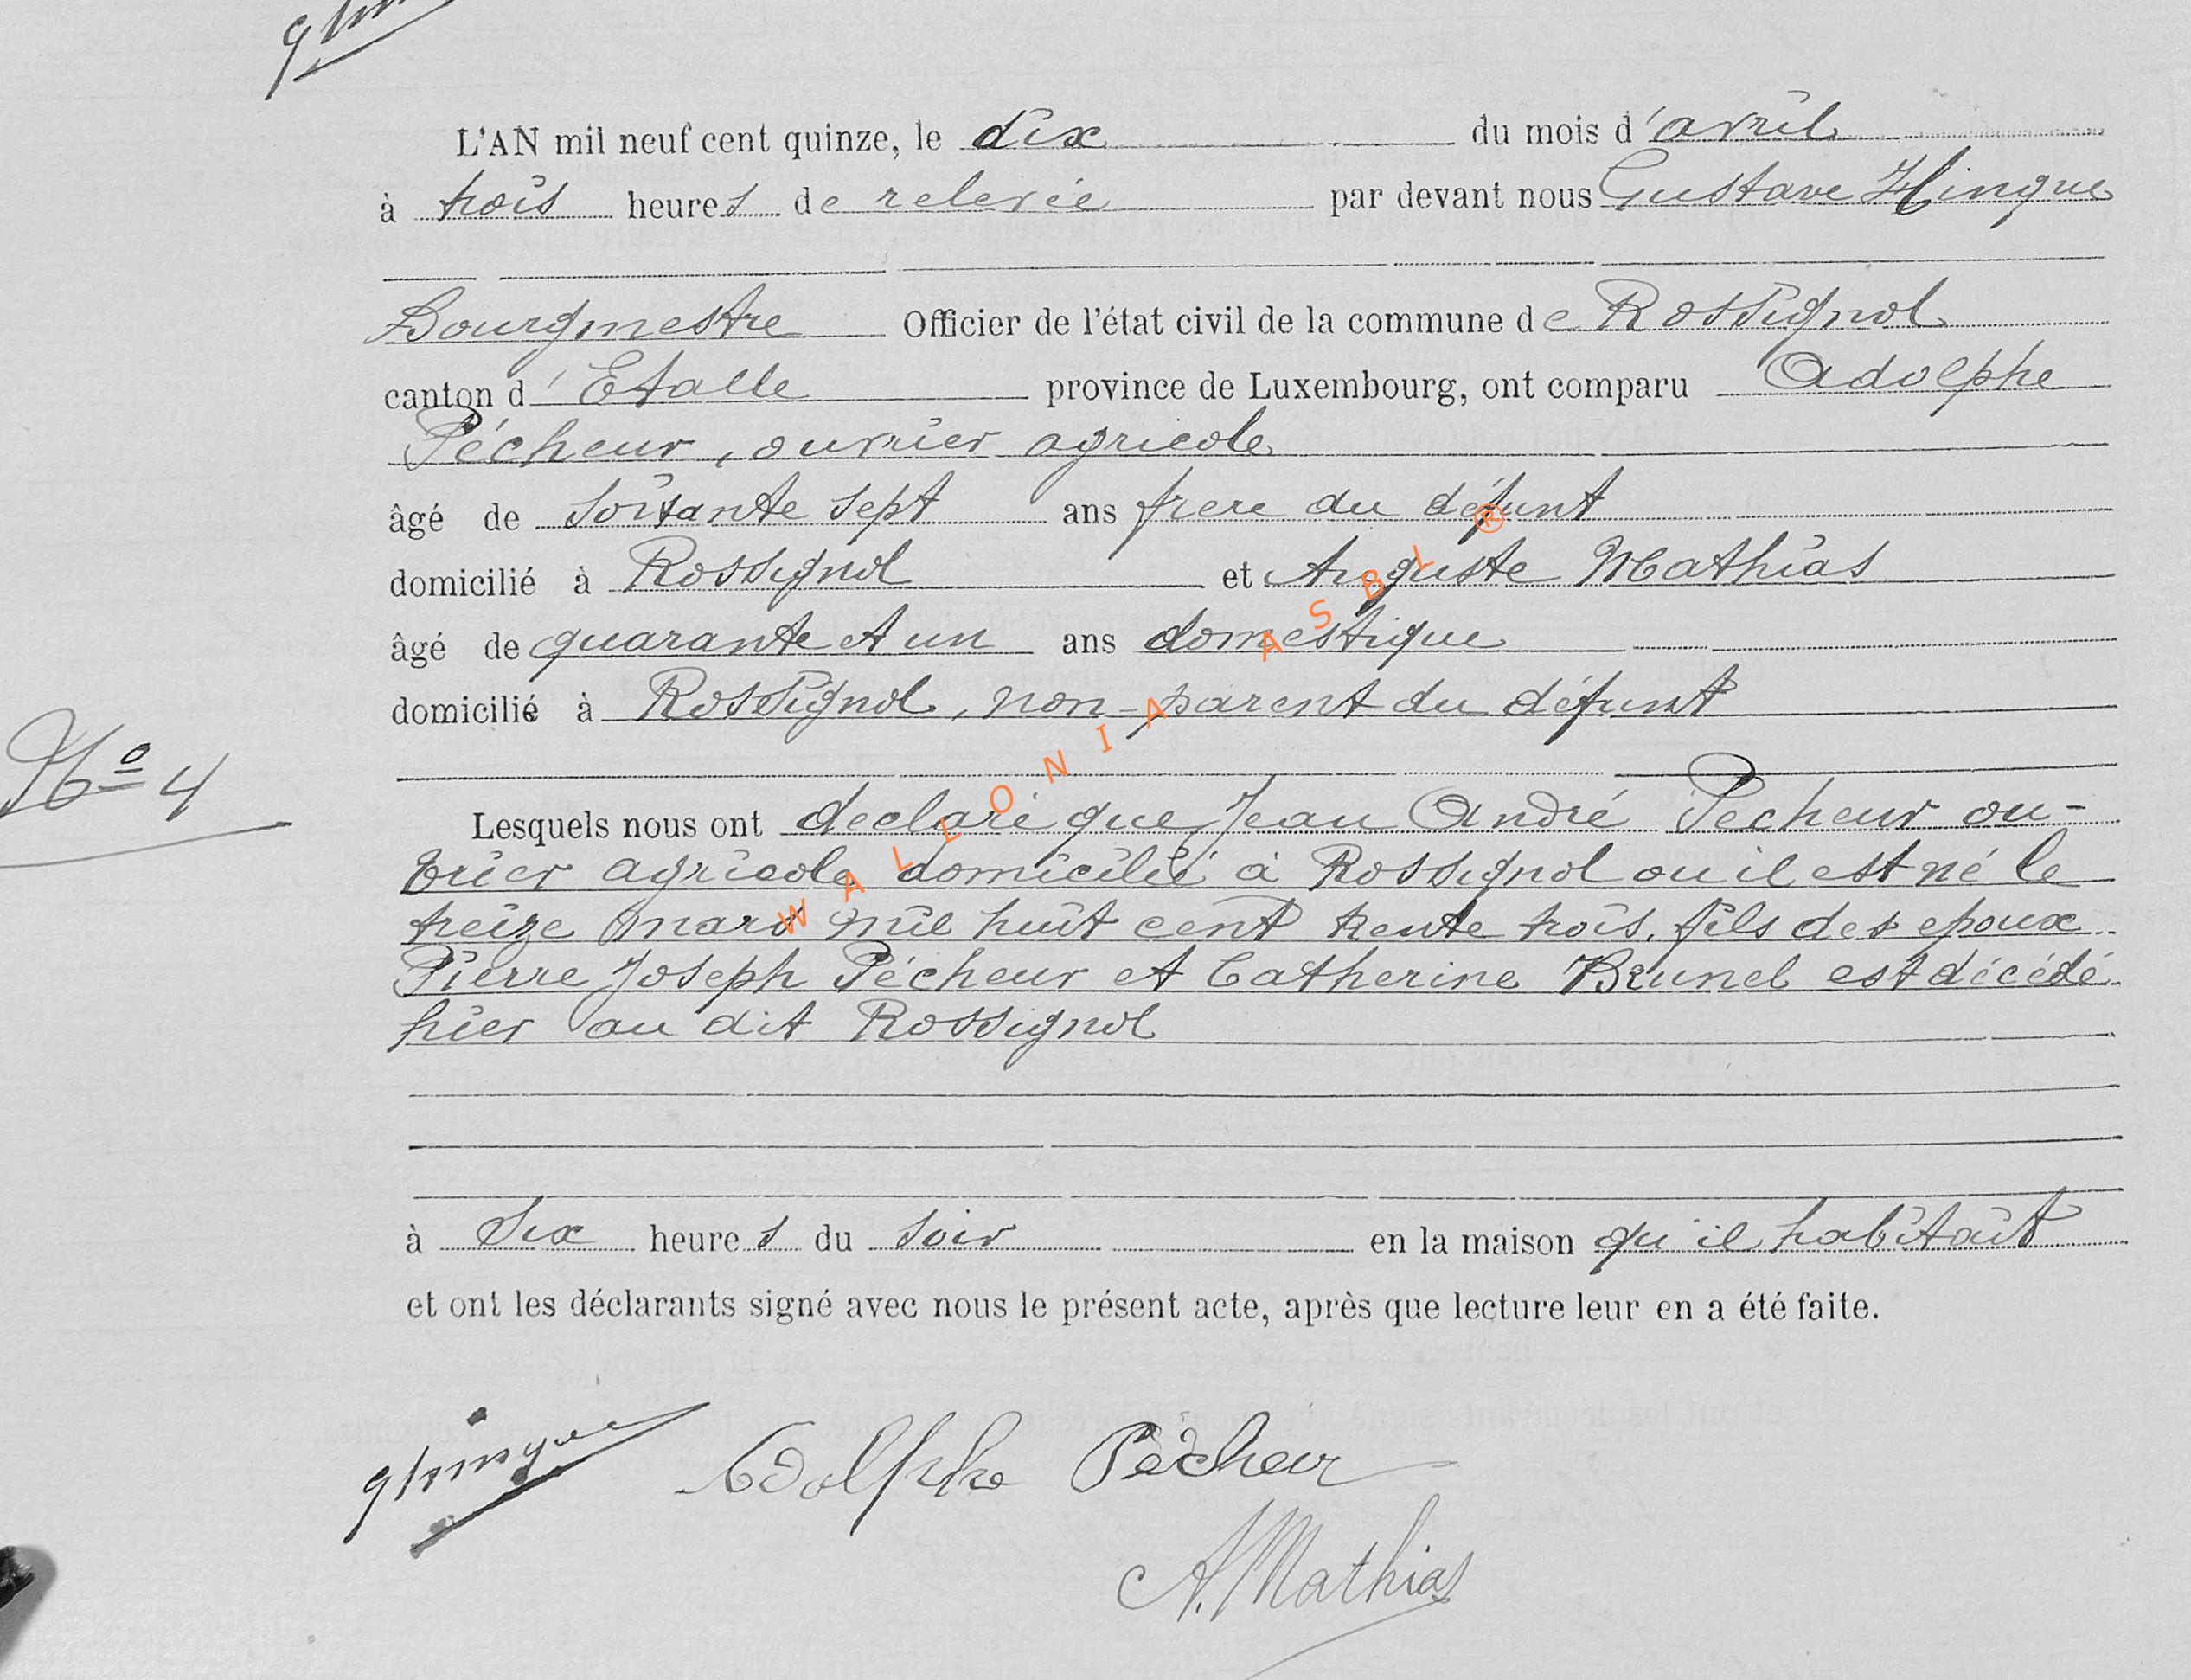 L'AN mil neuf cent quinze, le dix du mois d'avril
à trois heures de relevée par devant nous Gustave Hinque
Bourgmestre Officier de l'état civil de la commune de Rossignol
canton d'Etalle province de Luxembourg, ont comparu Adolphe
Pêcheur, ouvrier agricole
âgé de soixante sept ans frere du défunt
domicilié à Rossignol et Auguste Mathias
âgé de quarante et un ans domestique
domicilié à Rossignol, non-parent du défunt
No 4
Lesquels nous ont declaré que Jean André Pecheur ou-
vrier agricole domicilié à Rossignol ou il est né le
treize mars mil huit cent trente trois, fils des epoux
Pierre Joseph Pécheur et Catherine Brunel est décédé
hier au dit Rossignol
à six heures du soir en la maison qu'il habitait
et ont les déclarants signé avec nous le présent acte, après que lecture leur en a été faite.
GHinque Adolphe Pêcheur
A. Mathias
WALLONIA ASBL ®